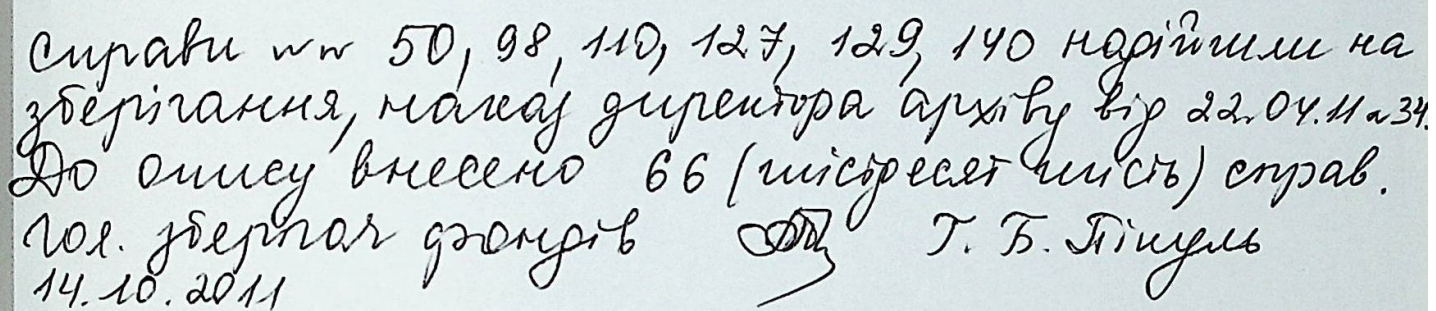 Справи №№ 50, 98, 110, 127, 129, 140 надійшли на
зберігання, наказ директора архіву від 22.04.11 № 34.
До опису внесено 66 (шістдесят шість) справ.
Гол. зберігач фондів Г. Б. Пікуль
14.10.2011